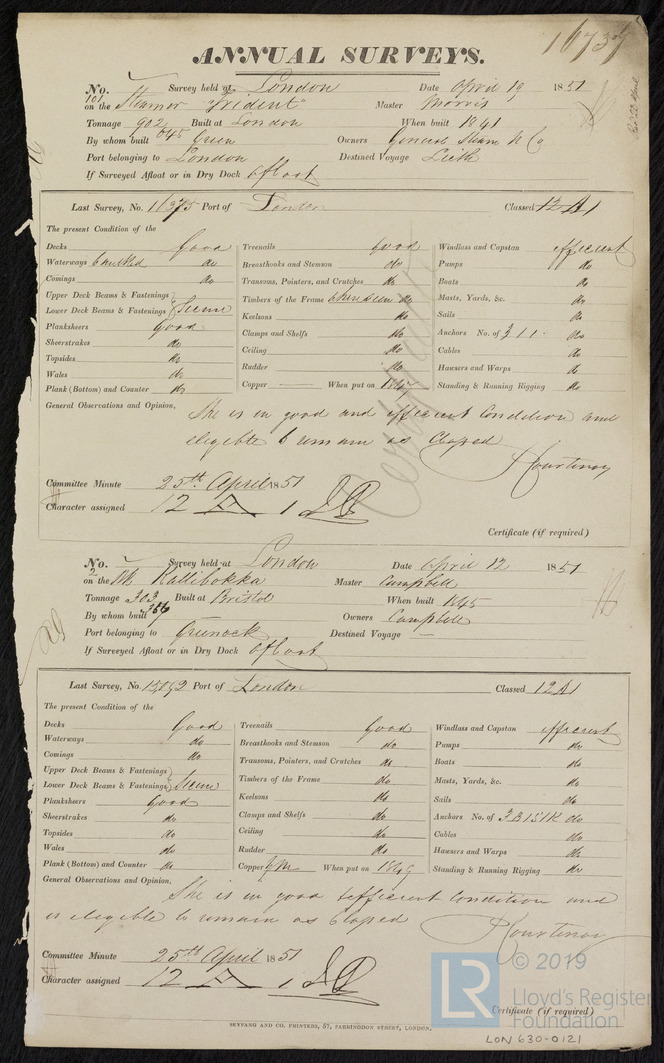 16737
ANNUAL SURVEYS.
No. Survey held at London Date April 19 1851
101 on the Steamer "Trident" Master Morris
Tonnage 902 645 Built at London When built 1841
By whom built Green Owners General Steam N Co
Port belonging to London Destined Voyage Leith
If Surveyed Afloat or in Dry Dock Afloat
Last Survey, No. 16375 Port of London Classed 12 A1
The present Condition of the
Decks Good
Waterways Caulked do
Comings do
Upper Deck Beams & Fastenings
Lower Deck Beams & Fastenings Secure
Planksheers Good
Sheerstrakes do
Topsides do
Wales do
Plank (Bottom) and Counter do
Treenails Good
Breasthooks and Stemson do
Transoms, Pointers, and Crutches do
Timbers of the Frame do
Keelsons do
Clamps and Shelfs do
Ceiling do
Rudder do
Copper When put on 1847
Windlass and Capstan efficient
Pumps do
Boats do
Masts, Yards, &c. do
Sails do
Anchors No. of 3 1 1 do
Cables do
Hawsers and Warps do
Standing & Running Rigging do
General Observations and Opinion,
She is in good and efficient Condition and
eligible to remain as Classed
Courtenay
Certificate
Committee Minute 25th April 1851
Character assigned 12 A 1
Certificate (if required)
No. Survey held at London Date April 12 1851
2 on the Bk Kallibokka Master Campbell
Tonnage 303 356 Built at Bristol When built 1845
By whom built Owners Campbell
Port belonging to Greenock Destined Voyage —
If Surveyed Afloat or in Dry Dock Afloat
Last Survey, No. 15092 Port of London Classed 12 A1
The present Condition of the
Decks Good
Waterways do
Comings do
Upper Deck Beams & Fastenings
Lower Deck Beams & Fastenings Secure
Planksheers Good
Sheerstrakes do
Topsides do
Wales do
Plank (Bottom) and Counter do
Treenails Good
Breasthooks and Stemson do
Transoms, Pointers, and Crutches do
Timbers of the Frame do
Keelsons do
Clamps and Shelfs do
Ceiling do
Rudder do
Copper When put on 1849
Windlass and Capstan efficient
Pumps do
Boats do
Masts, Yards, &c. do
Sails do
Anchors No. of 3B 1S 1K do
Cables do
Hawsers and Warps do
Standing & Running Rigging do
General Observations and Opinion,
She is in good & efficient Condition and
is eligible to remain as Classed
Courtenay
Committee Minute 25th April 1851
Character assigned 12 A 1
Certificate (if required)
SEYFANG AND CO. PRINTERS, 57, FARRINGDON STREET, LONDON.
LR © 2019
Lloyd's Register
Foundation
LON 630-0121